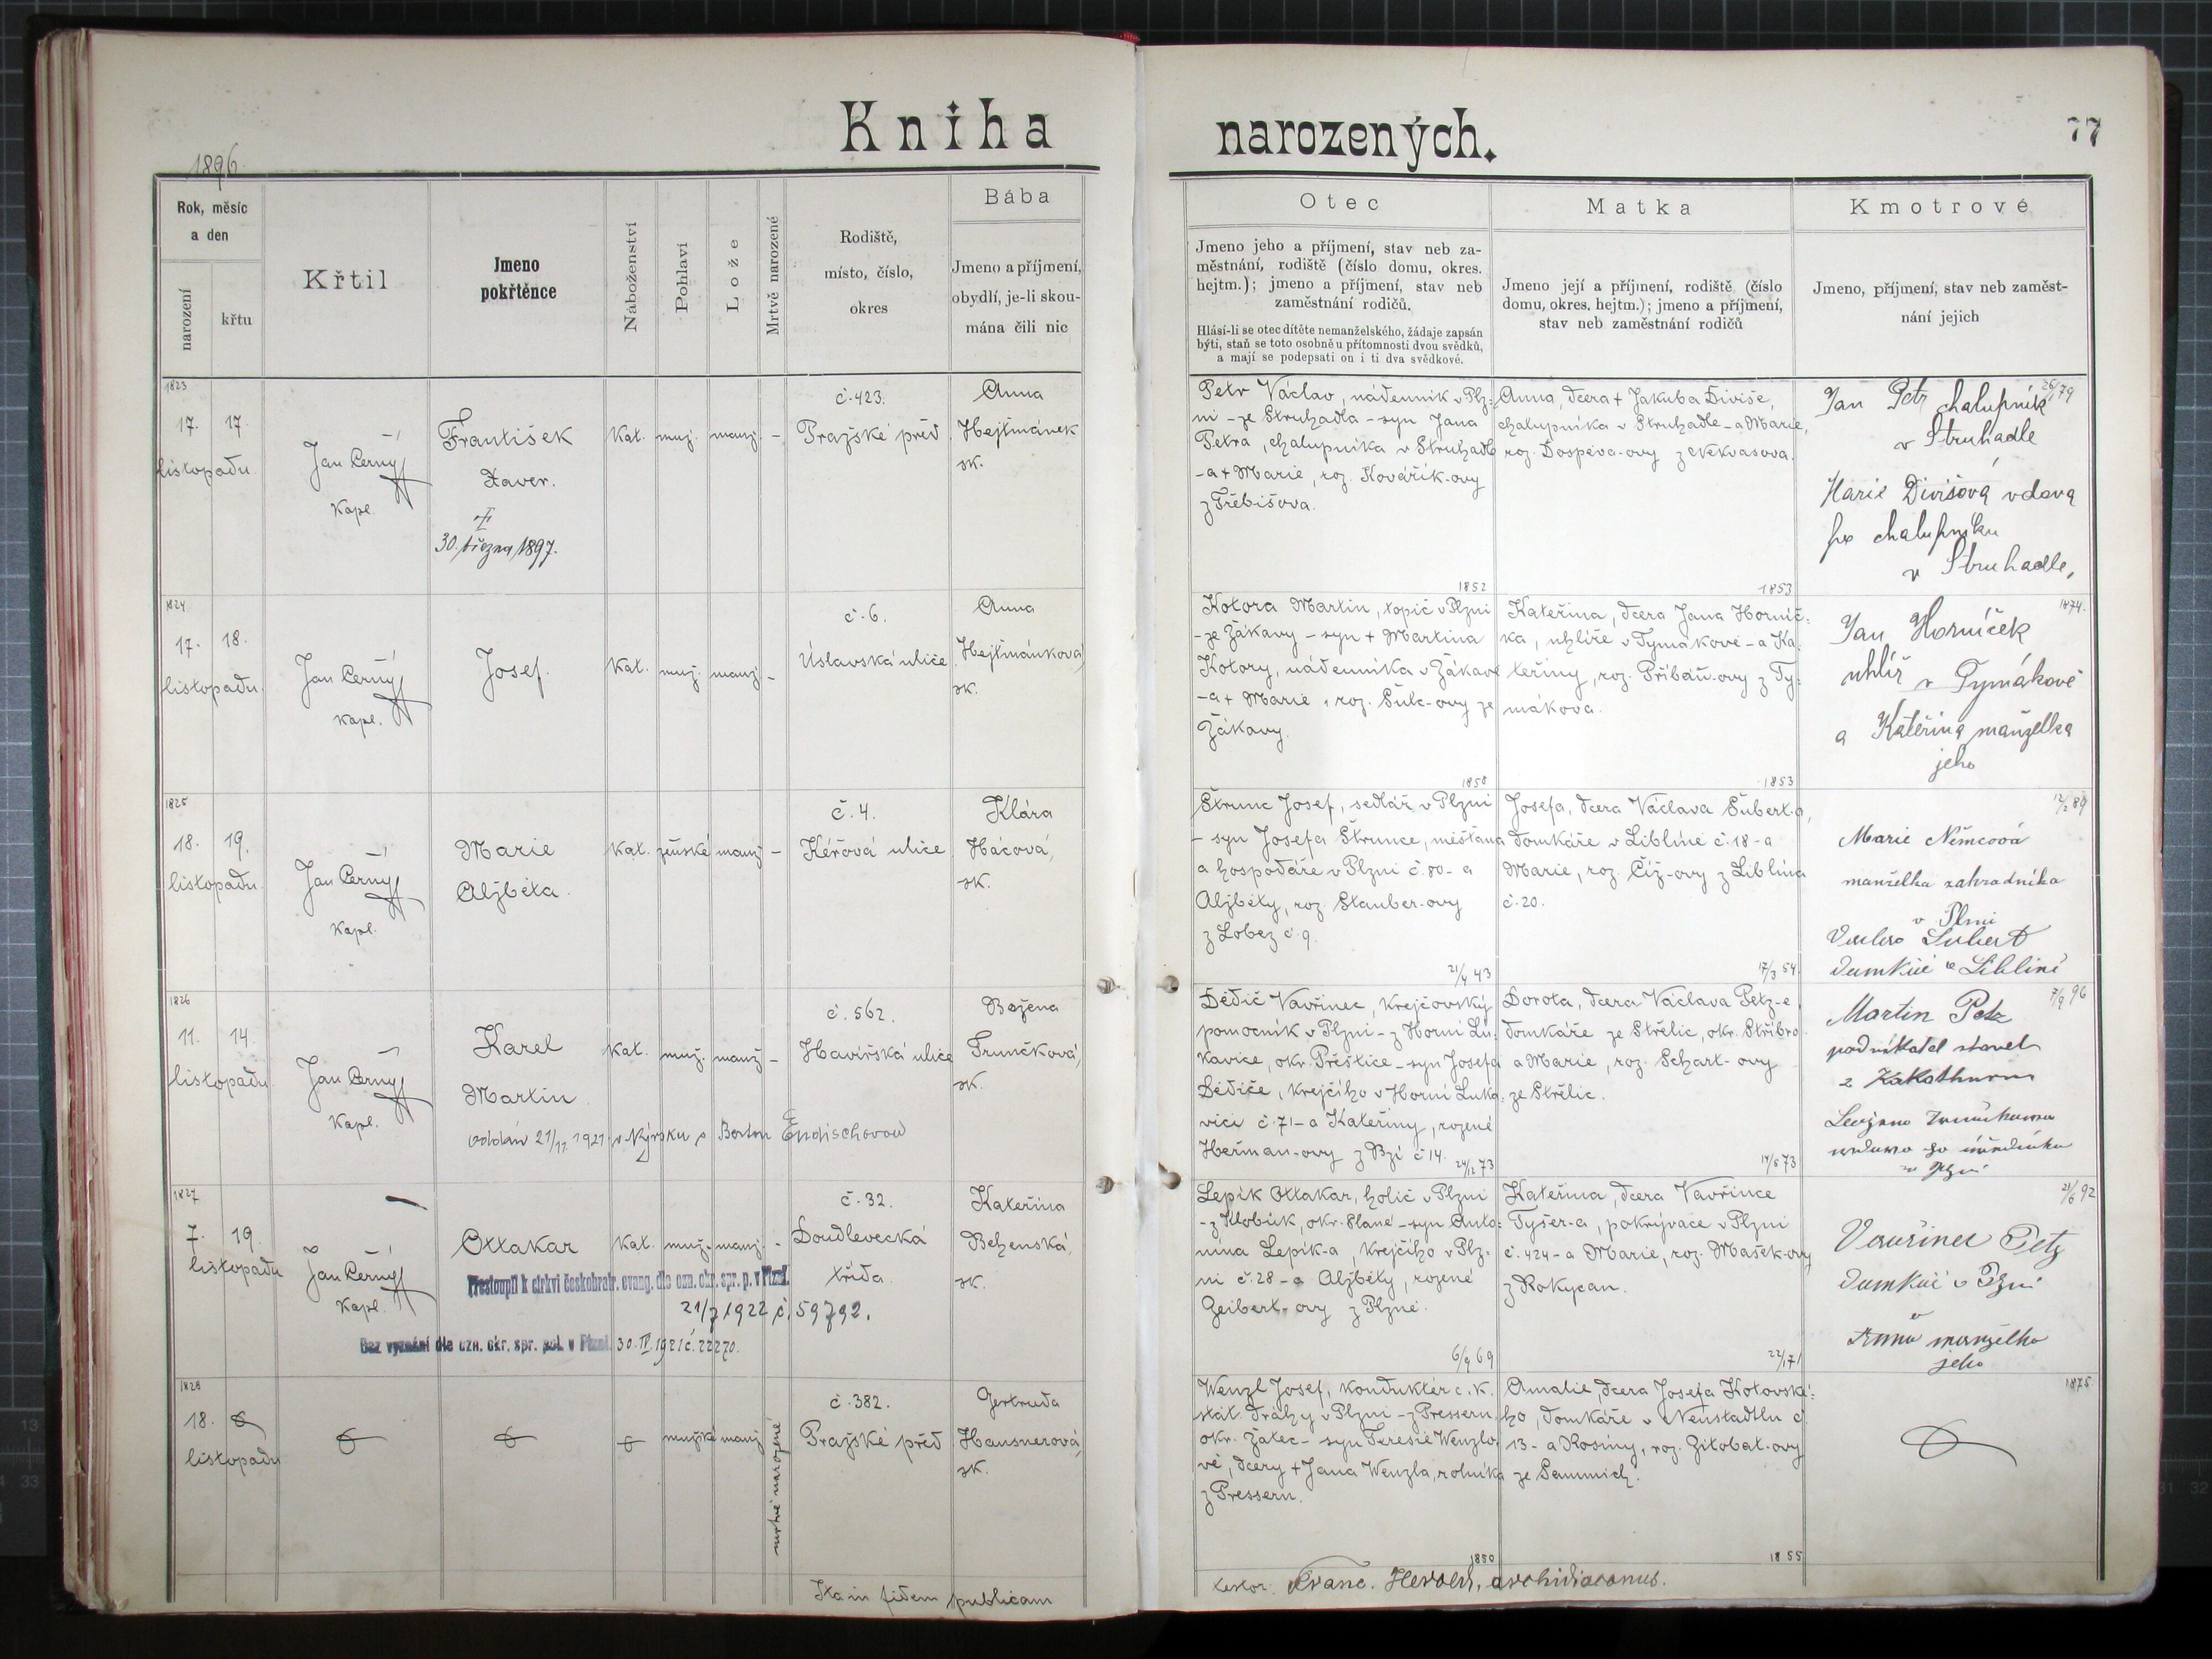 Kniha narozených.
77
1896
Rok, měsíc a den
narození
křtu
Křtil
Jmeno pokřtěnce
Náboženství
Pohlaví
Lože
Mrtvě narozené
Rodiště,
místo, číslo,
okres
Bába
Jmeno a příjmení,
obydlí, je-li skou-
mána čili nic
Otec
Jmeno jeho a příjmení, stav neb za-
městnání, rodiště (číslo domu, okres.
hejtm.); jmeno a příjmení, stav neb
zaměstnání rodičů.
Hlásí-li se otec dítěte nemanželského, žádaje zapsán
býti, staň se toto osobně u přítomnosti dvou svědků,
a mají se podepsati on i ti dva svědkové.
Matka
Jmeno její a příjmení, rodiště (číslo
domu, okres. hejtm.); jmeno a příjmení,
stav neb zaměstnání rodičů
Kmotrové
Jmeno, příjmení, stav neb zaměst-
nání jejich
1823
17. 17
listopadu
Jan Černý
Kapl.
František
Xaver.
30. března 1897.
Kat.
muž.
manž.
-
č. 423.
Pražské před
Anna
Hejtmánek
sk.
Petr Václav, nádenník v Plz-
ni - ze Struhadla - syn Jana
Petra, chalupníka v Struhadle
- a + Marie, roz. Kovářík-ovy
z Třebišova.
1852
Anna, dcera + Jakuba Diviše,
chalupníka v Struhadle - a Marie,
roz. Dospěva-ovy z Nekvasova.
1853
26/79
Jan Petr chalupník
v Struhadle
Marie Divišová vdova
po chalupníku
v Struhadle,
1824
17. 18.
listopadu
Jan Černý
Kapl.
Josef.
Kat.
muž.
manž.
-
č. 6.
Úslavská ulice
Anna
Hejtmánková
sk.
Kotora Martin, topič v Plzni
- ze Žákavy - syn + Martina
Kotory, nádenníka v Žákavě
- a + Marie, roz. Šulc-ovy ze
Žákavy.
1858
Kateřina, dcera Jana Horníč-
ka, uhlíře v Tymákově - a Ka-
teřiny, roz. Přibáň-ovy z Ty-
mákova.
1853
1874.
Jan Horníček
uhlíř v Tymákově
a Kateřina manželka
jeho
1825
18. 19.
listopadu
Jan Černý
Kapl.
Marie
Aljběta.
Kat.
ženské
manž.
-
č. 4.
Kéřová ulice
Klára
Hácová,
sk.
Štrunc Josef, sedlář v Plzni
- syn Josefa Štrunce, měšťana
a hospodáře v Plzni č. 80 - a
Aljběty, roz. Stauber-ovy
z Lobez č. 9.
21/4 43
Josefa, dcera Václava Šubert-a,
domkáře v Liblíně č. 18 - a
Marie, roz. Číž-ovy z Liblína
č. 20.
17/3 54.
12/2 89
Marie Němcová
manželka zahradníka
v Plzni
Šubert
v Liblíně
1826
11. 14.
listopadu
Jan Černý
Kapl.
Karel
Martin
oddán 21/11 1921 v Nýrsku s Endischovou
Kat.
muž.
manž.
-
č. 562.
Havířská ulice
Božena
Trunčková,
sk.
Dědič Vavřinec, krejčovský
pomocník v Plzni - z Horní Lu-
kavice, okr. Přeštice - syn Josefa
Dědiče, krejčího v Horní Luka-
vici č. 71 - a Kateřiny, rozené
Heřman-ovy z Bzí č. 14.
24/12 73
Dorota, dcera Václava Petz-e,
domkáře ze Střelic, okr. Stříbro
a Marie, roz. Schart-ovy
ze Střelic.
14/5 73
7/9 96
Martin Petz
podnikatel staveb
z
v Plzni
1827
7. 19.
listopadu
Jan Černý
Kapl.
Ottakar
Kat.
muž.
manž.
-
č. 32.
Doudlevecká
třída
Kateřina
Behenská,
sk.
Přestoupil k církvi českobratr. evang. dle ozn. okr. spr. p. v Plzni.
21/7 1922 č. 59792.
Bez vyznání dle ozn. okr. spr. pol. v Plzni. 30. IV. 1921 č. 22270.
Lepík Ottakar, holič v Plzni
- z Klobúk, okr. Slané - syn Anto-
nína Lepík-a, krejčího v Plz-
ni č. 28 - a Aljběty, rozené
Geibert-ovy z Plzně.
6/9 69
Kateřina, dcera Vavřince
Tyšer-a, pokrývače v Plzni
č. 424 - a Marie, roz. Mašek-ovy
z Rokycan.
22/1 71
21/6 92
Vavřinec
v Plzni
a
Anna manželka
jeho
1828
18.
listopadu
mužské
manž.
mrtvě narozené
č. 382.
Pražské před
Gertruda
Hausnerová,
sk.
Wenzl Josef, kondukter c. k.
stát. dráhy v Plzni - z Pressern,
okr. Žatec - syn Teresie Wenzlo-
vé, dcery + Jana Wenzla, rolníka
z Pressern.
1850
Amalie, dcera Josefa Kotovské-
ho, domkáře v Neustadtlu č.
13 - a Rosiny, roz. Zitobat-ovy
ze Semmich.
1855
1875
Ita in fidem publicam
testor. Franc. Herold, archidiaconus.